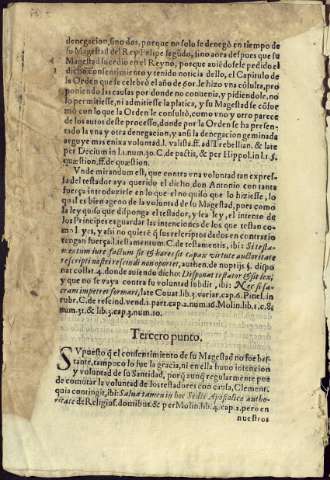 denegacion, sino dos, porque no solo se denegò en tiempo de
su Magestad del Rey Felipe segũdo, sino aora despues que su
Magestad sucedio en el Reyno, porque auiẽdosele pedido el
dicho consentimiento y tenido noticia dello, el Capitulo de
la Orden que se celebrò el año de por le hizo vna cõsulta, pro
poniendo las causas por donde no conuenia, y pidiendole, no
lo permitiesse, ni admitiesse la platica, y su Magestad se cõfor
mò con lo que la Orden le consultò, como vno y otro parece
de los autos deste processo, donde por la Orden se ha presen-
tado la vna y otra denegacion, y ansi la denegacion geminada
arguye mas enixa voluntad. l. balista. ff. ad Trebellian. & late
per Decium in l. 1. num. 30. C. de pactis, & per Hippol. in l. 1. §.
quæstion. ff. de quæstion.
Vnde mirandum est, que contra vna voluntad tan expres-
sa del testador aya querido el dicho don Antonio con tanta
fuerça introduzirse en lo que el no quiso que lo hiziesse, lo
qual es bien ageno de la voluntad de su Magestad, pues como
la ley quiso que disponga el testador, y sea ley, el intento de
los Principes es aguardar las intenciones de los que testan co-
mo ley es, y assi no quierẽ q̃ sus rescriptos dados en contrario
tengan fuerça. l. testamentum. C. de testamentis, ibi: Si testa-
mentum iure factum sit & hæres sit capax virtute auctoritate
rescripti nostri rescindi non oportet, authen. de nuptijs. §. dispo
nat collat. 4. donde auiendo dicho: Disponat testator & sit lex,
y que no se vaya contra su voluntad subdit, ibi: Nec si sa-
cram impetret formam, late Couat. lib. 3. variar. cap. 6. Pinel. in
rubr. C. de rescind. vend. 1. part. cap. 2. num. 26. Molin. lib. 1. c. 8.
num. 31. & lib. 3. cap. 3. num. 10.
Tercero punto.
SVpuesto q̃ el consentimiento de su Magestad no fue bas-
tante, tampoco lo fue la gracia, ni en ella huuo intencion
y voluntad de su Santidad, porq̃ aunq̃ regularmente pue
de comutar la voluntad de los testadores con causa, Clement.
quia contingit, ibi: Salua tamen in hoc Sedis Apostolicæ autho-
ritate de Religios. domibus & per Molin. lib. 4. cap. 2. pero en
nuestros